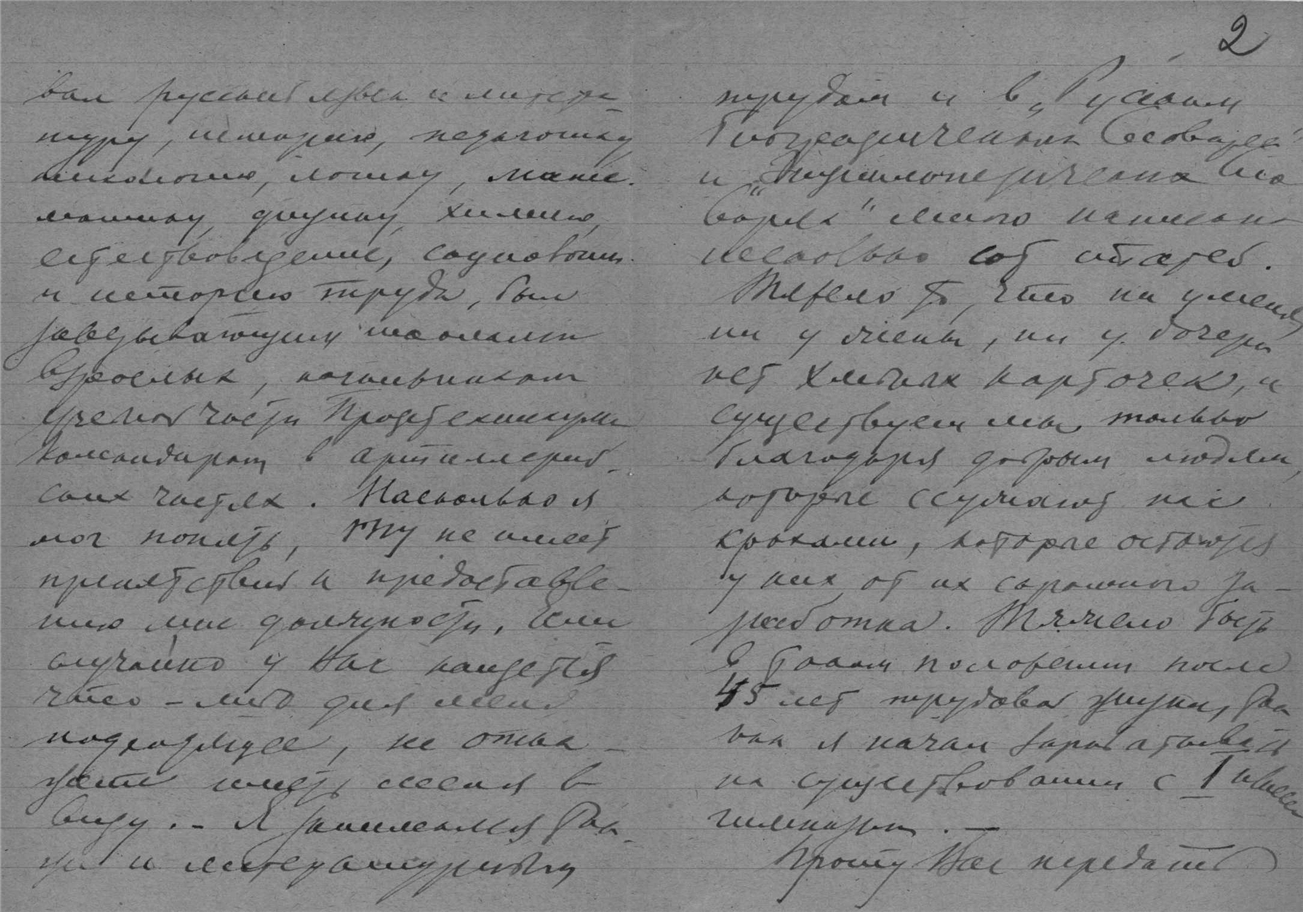 2
вал русский язык и литера
туру, историю, педагогику
психологию, логику, мате-
матику, физику, химию,
естествоведение, социологию
и историю труда, был
заведывающим школами
взрослых, начальником
учебной части Профтехникума
командиром в артиллерий-
ских частях. Насколько я
мог понять, ГПУ не имеет
препятствий к предоставле-
нию мне должности. Если
случайно у Вас найдется
что-либо для меня
подходящее, не отка-
жите иметь меня в
виду. - Я занимался так-
же и литературным
трудом и в „Русском
биографическом словаре"
и „Энциклопедическом сло
варе" мною написано
несколько сот статей.
Тяжело то, что ни у меня,
ни у жены, ни у дочери
нет хлебных карточек, и
существуем мы только
благодаря добрым людям,
которые ссужают нас
крохами, которые остаются
у них от их скромного за-
работка. Тяжело быть
в таком положении после
45 лет трудовой жизни, так
как я начал зарабатывать
на существование с I класса
гимназии. —
Прошу Вас передать